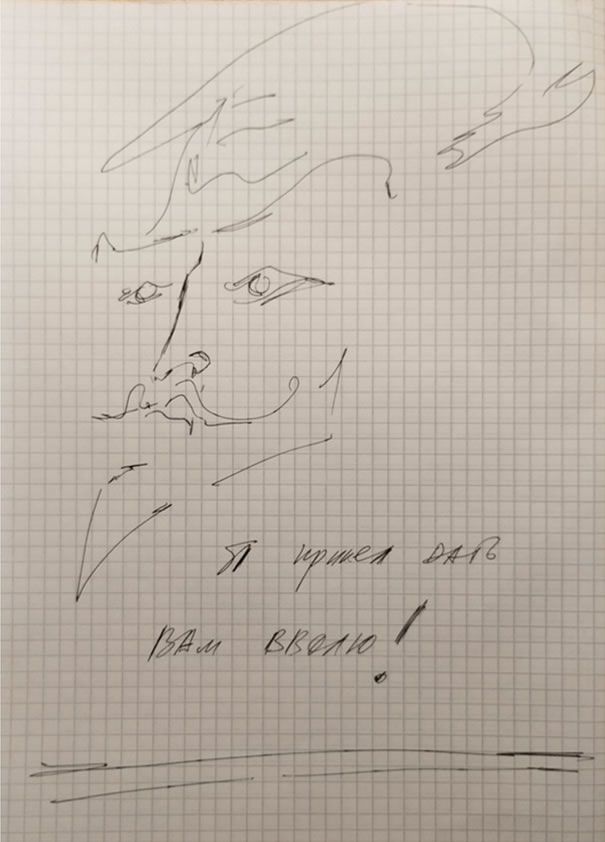 Я пришел дать
вам вволю!